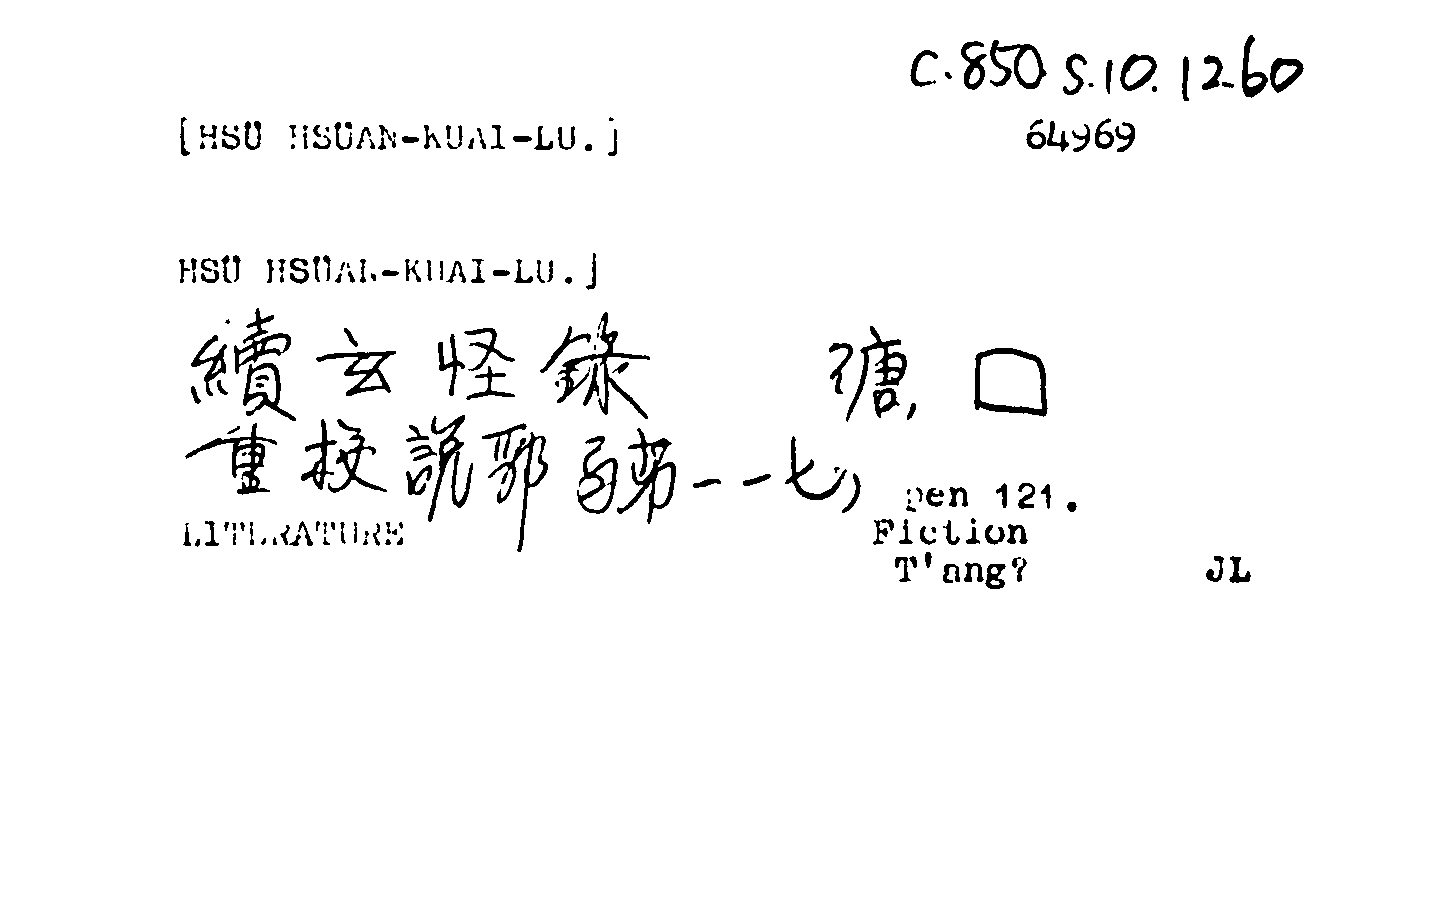 C.850 S.10. 1260
[HSÜ HSÜAN-KUAI-LU.]
64969
HSÜ HSÜAN-KUAI-LU.]
續玄怪錄 □
重校說郛 一一七, pen 121.
LITERATURE Fiction
T'ang? JL